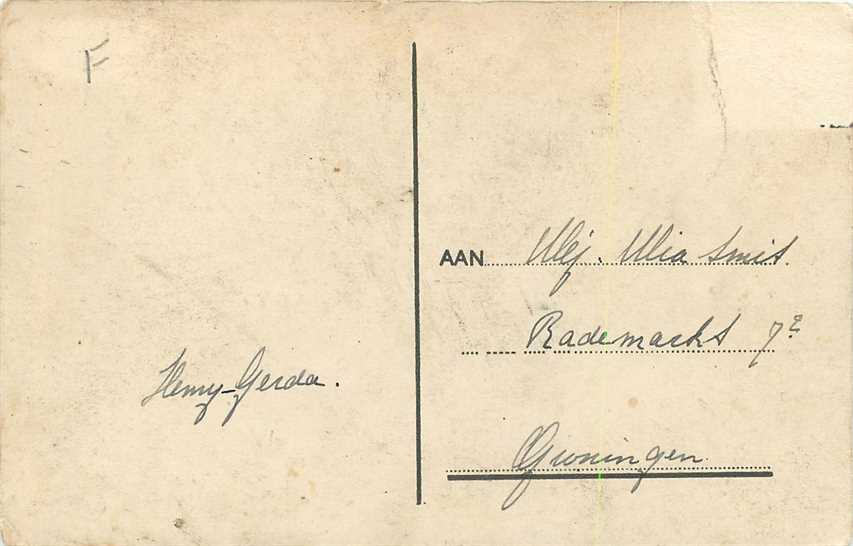 F
Henny-Gerda.
AAN Mej. Mia Smit.
Rademarkt 7²
Groningen